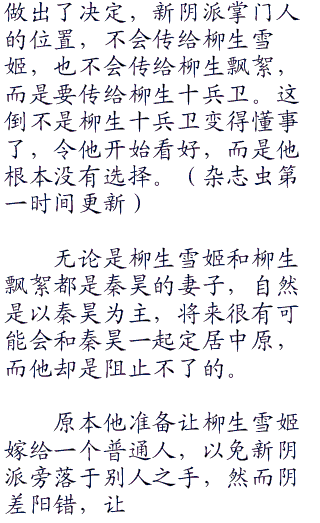 做出了决定，新阴派掌门人
的位置，不会传给柳生雪
姬，也不会传给柳生飘絮，
而是要传给柳生十兵卫。这
倒不是柳生十兵卫变得懂事
了，令他开始看好，而是他
根本没有选择。（杂志虫第
一时间更新）
无论是柳生雪姬和柳生
飘絮都是秦昊的妻子，自然
是以秦昊为主，将来很有可
能会和秦昊一起定居中原，
而他却是阻止不了的。
原本他准备让柳生雪姬
嫁给一个普通人，以免新阴
派旁落于别人之手，然而阴
差阳错，让